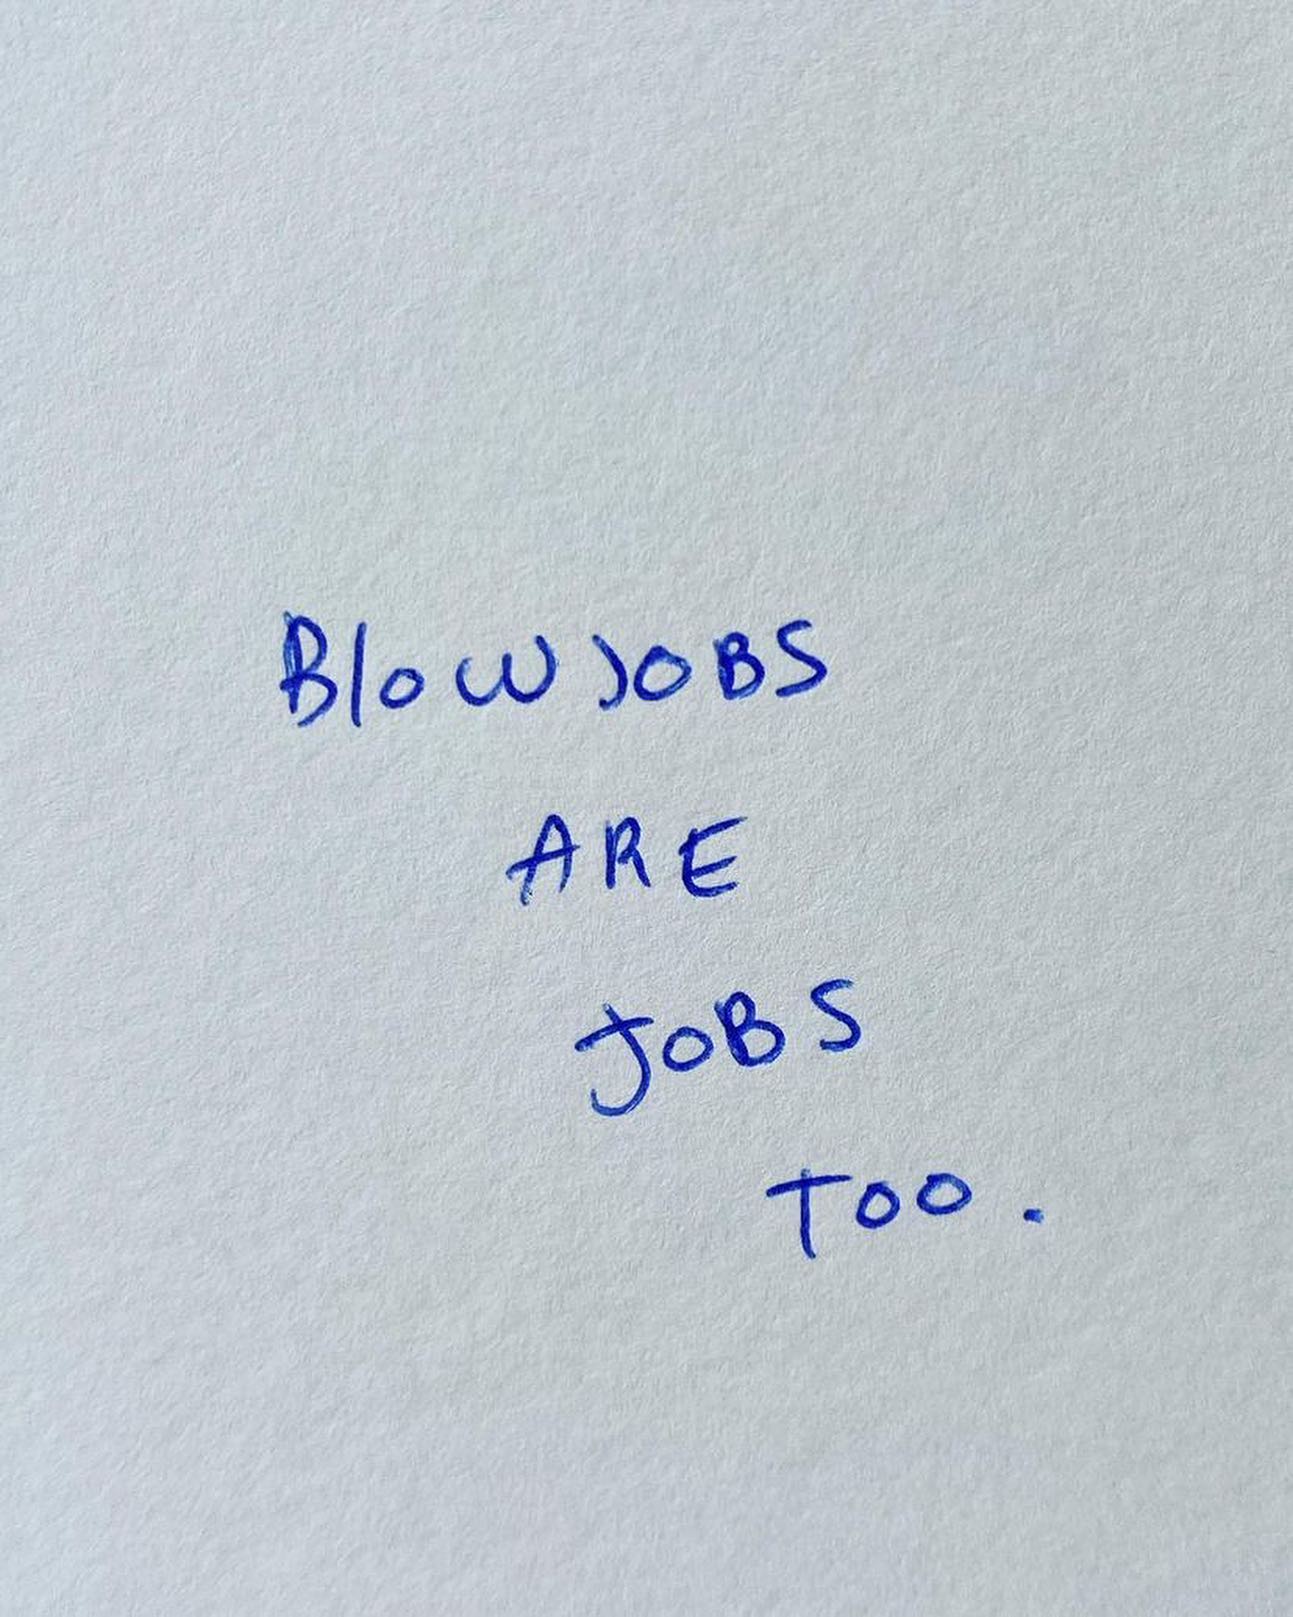 BlOWJOBS
ARE
JOBS
TOO.